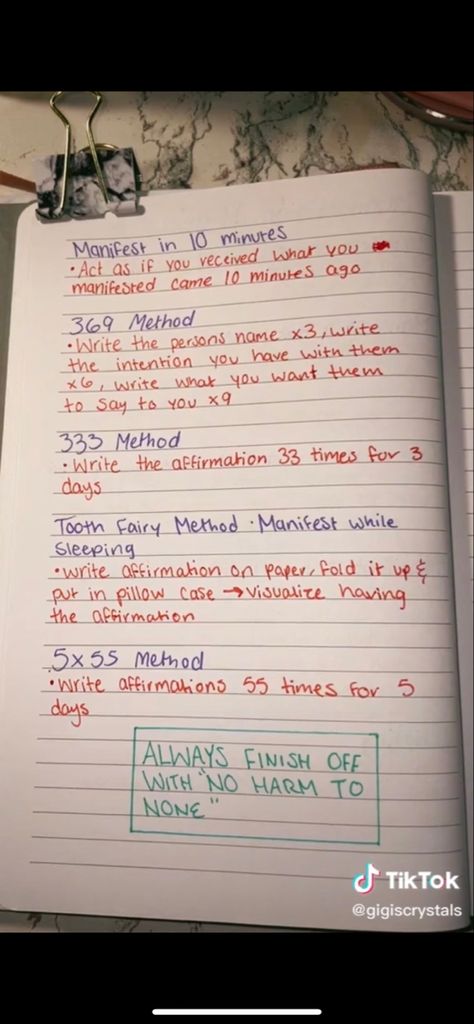 Manifest in 10 minutes
• Act as if you received what you
manifested came 10 minutes ago
369 Method
• Write the persons name x3, write
the intention you have with them
x6, write what you want them
to say to you x9
333 Method
• Write the affirmation 33 times for 3
days
Tooth Fairy Method • Manifest while
Sleeping
• Write affirmation on paper, fold it up &
put in pillow case → visualize having
the affirmation
5x55 Method
• Write affirmations 55 times for 5
days
ALWAYS FINISH OFF
WITH "NO HARM TO
NONE"
TikTok
@gigiscrystals